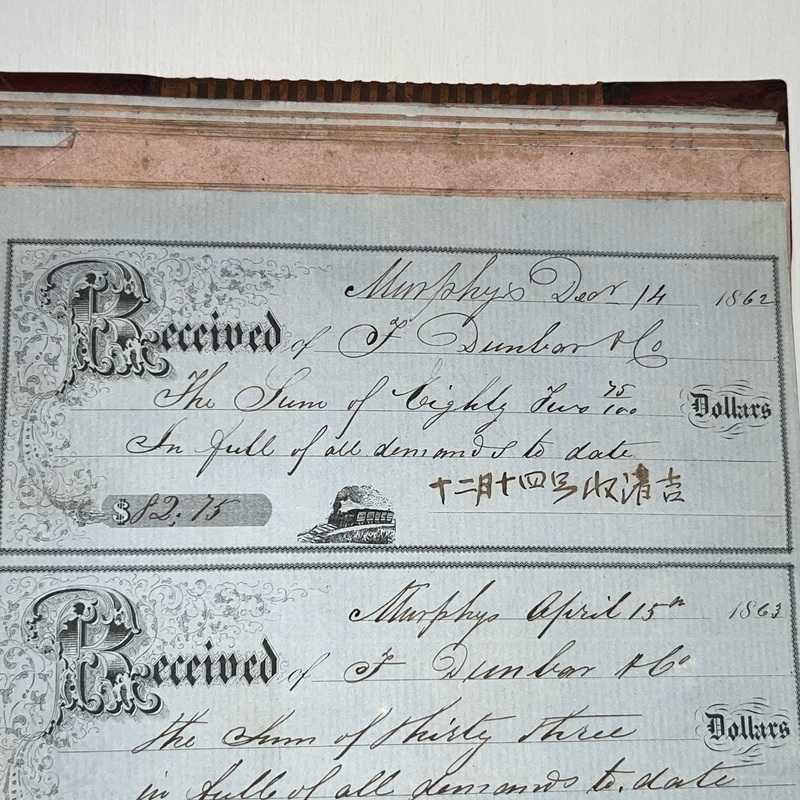 Murphys Decr 14 1862
Received of F Dunbar & Co
The Sum of Eighty Two 75/100 Dollars
In full of all demands to date
十二月十四号收清吉
$82.75
Murphys April 15th 1863
Received of F Dunbar & Co
the Sum of thirty three Dollars
in full of all demands to date